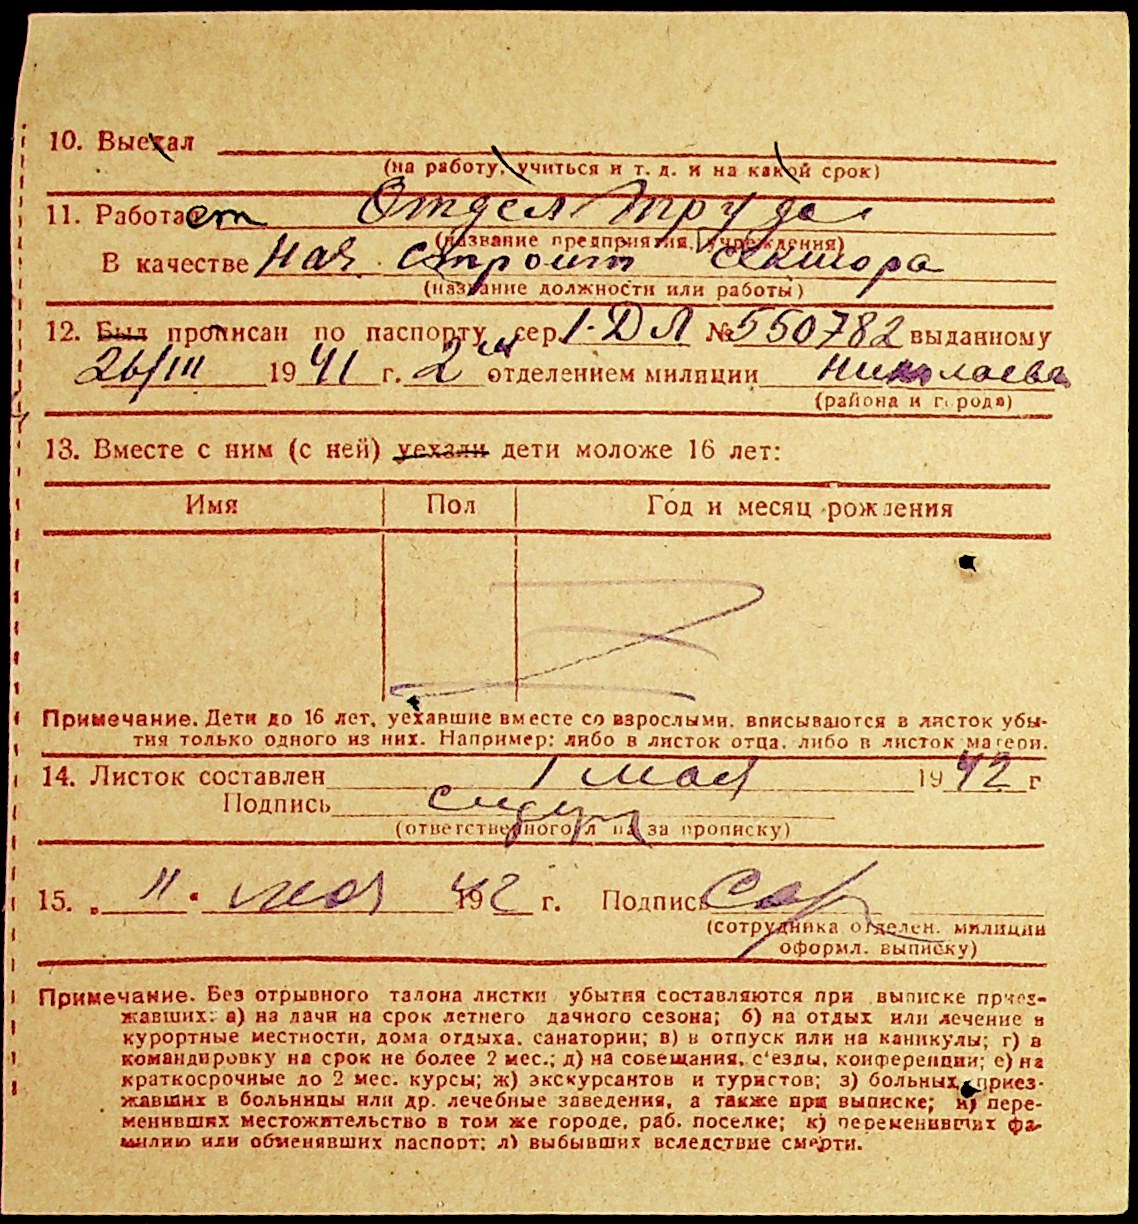 10. Выехал
(на работу, учиться и т. д. и на какой срок)
11. Работает Отдел Труда
(название предприятия, учреждения)
В качестве Нач. строит сектора
(название должности или работы)
12. Был прописан по паспорту сер. 1-ДЛ № 550782 выданному
26/III 1941 г. 2 отделением милиции Николаева
(района и города)
13. Вместе с ним (с ней) уехали дети моложе 16 лет:
Имя Пол Год и месяц рождения
Примечание. Дети до 16 лет, уехавшие вместе со взрослыми, вписываются в листок убы-
тия только одного из них. Например: либо в листок отца, либо в листок матери.
14. Листок составлен 1 мая 1942 г
Подпись
(ответственного л на за прописку)
15. „ 11 " мая 1942 г. Подпись
(сотрудника отделен. милиции
оформл. выписку)
Примечание. Без отрывного талона листки убытия составляются при выписке приез-
жавших: а) на дачи на срок летнего дачного сезона; б) на отдых или лечение в
курортные местности, дома отдыха, санатории; в) в отпуск или на каникулы; г) в
командировку на срок не более 2 мес.; д) на совещания, с'езды, конференции; е) на
краткосрочные до 2 мес. курсы; ж) экскурсантов и туристов; з) больных, приез-
жавших в больницы или др. лечебные заведения, а также при выписке; и) пере-
менивших местожительство в том же городе, раб. поселке; к) переменивших фа-
милию или обменявших паспорт; л) выбывших вследствие смерти.